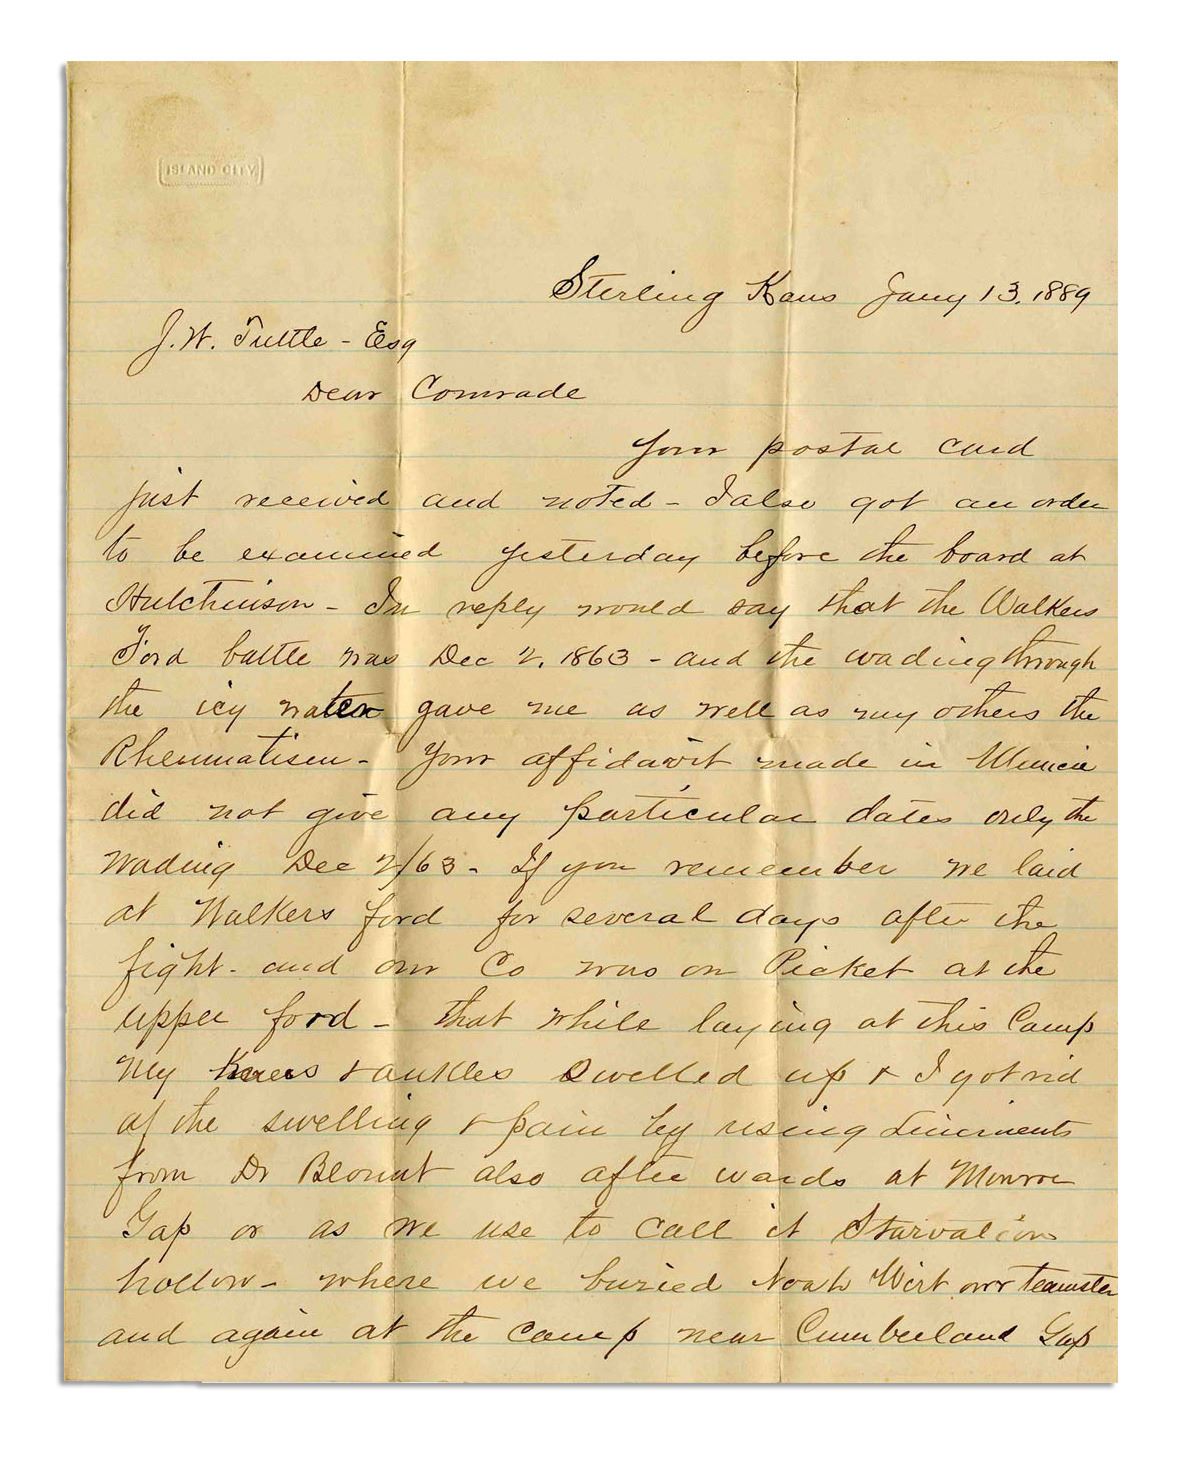 ISLAND CITY
Sterling Kans Jany 13. 1889
J. W. Tuttle - Esq
Dear Comrade
Your postal card
just received and noted - I also got an order
to be examined yesterday before the board at
Hutchinson - In reply would say that the Walkers
Ford battle was Dec 2. 1863 - and the wading through
the icy water gave me as well as my others the
Rheumatism - Your affidavit made in Muncie
did not give any particular dates only the
wading Dec 2/63 - If you remember we laid
at Walkers ford for several days after the
fight - and our Co was on Picket at the
upper ford - that while laying at this Camp
my Knees & ankles Swelled up & I got rid
of the swelling & pain by using Liniments
from Dr Blount also after wards at Monroe
Gap or as we use to call it Starvation
hollow - where we buried Noah Wirt our teamster
and again at the camp near Cumberland Gap